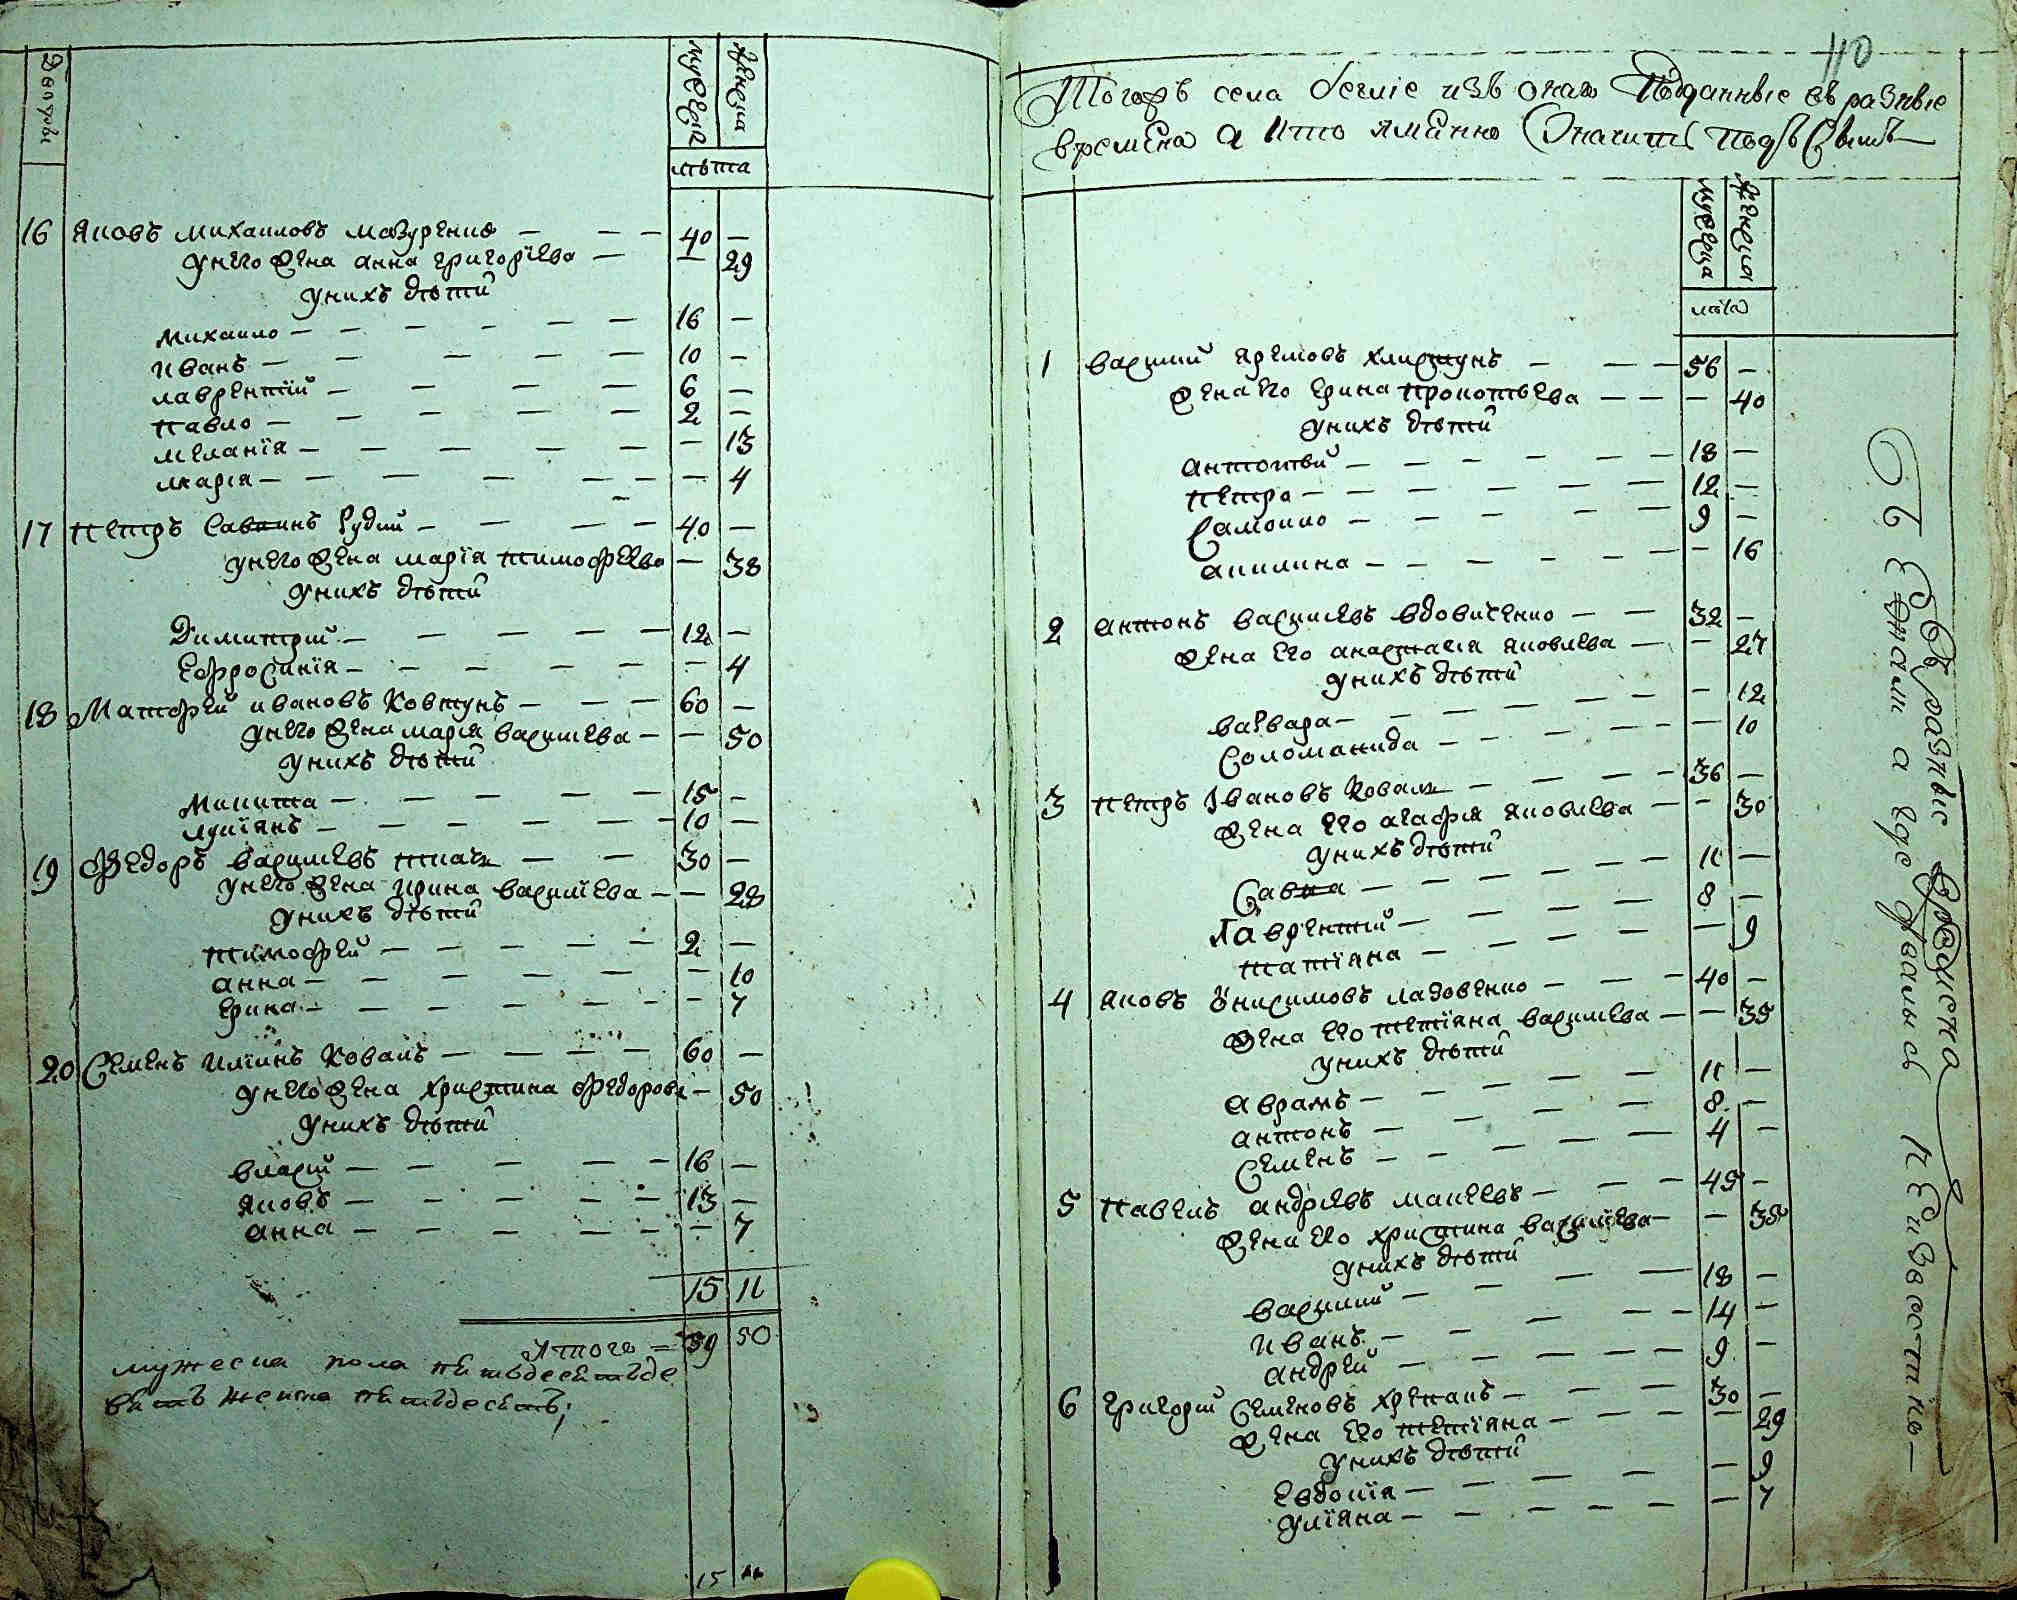 Дворъ
мужеска
женска
лѣта
16 Яковъ михаиловъ мазуренко — — — 40 —
унего жена анна григорїева — — 29
унихъ дѣти
михаило — — — — — — 16 —
иванъ — — — — — 10 —
лаврентїй — — — — — 6 —
павло — — — — — 2 —
меланїя — — — — — — 13
марїя — — — — — — 4
17 петръ савинъ рудий — — — — 40 —
унего жена марїя тимофеева — 38
унихъ дѣти
димитрий — — — — — 12 —
ефросинїя — — — — — — 4
18 Матфей ивановъ ковтунъ — — — 60 —
унего жена марїя василиева — — 50
унихъ дѣти
микита — — — — — 15 —
лукїянъ — — — — — 10 —
19 федоръ василиевъ ткачъ — — 30 —
унего жена ирина василїева — — 28
унихъ дѣти
тимофей — — — — — 2 —
анна — — — — — — 10
ерина — — — — — — 7
20 Семенъ илїинъ коваль — — — — 60 —
унего жена христина федорова — 50
унихъ дѣти
власий — — — — — 16 —
яковъ — — — — — 13 —
анна — — — — — — 7
15 11
Итого = 59 50
мужеска пола пятьдесятьде
вять женска пятьдесятъ;
15 11
110
Тогожъ села беглїе изъ онаго подданные въ разные
времена а кто имянно значитъ подъ симъ
мужеска
женска
лѣта
1 василий яремовъ хлистунъ — — — 56 —
жена его ерина прокопьева — — — 40
унихъ дѣти
антоний — — — — — — 18 —
петро — — — — — — 12 —
самойло — — — — — 9 —
акилина — — — — — — 16
2 антонъ василиевъ вдовиченко — — 32 —
жена его анастасия яковлева — — 27
унихъ дѣти
варвара — — — — — — 12
соломанида — — — — — 10
3 петръ ивановъ коваль — — — — 36 —
жена его агафия яковлева — — 30
унихъ дѣти
савка — — — — — — 11 —
лаврентий — — — — — 8 —
татїяна — — — — — 9
4 яковъ онисимовъ ладовенко — — — 40 —
жена его тетїяна василиева — — 35
унихъ дѣти
аврамъ — — — — — 11 —
антонъ — — — — 8 —
семенъ — — — — — 4 —
5 павелъ андреевъ макеевъ — — — 45 —
жена его христина василїева — — 35
унихъ дѣти
василий — — — — 18 —
иванъ — — — — 14 —
андрей — — — — — 9 —
6 григорий семеновъ хрепакъ — — — 30 —
жена его тетїяна — — — — 29
унихъ дѣти
евдокїя — — — — — 9
улїяна — — — — — — 7
Въ разные времена
бежали а где
неизвестно —